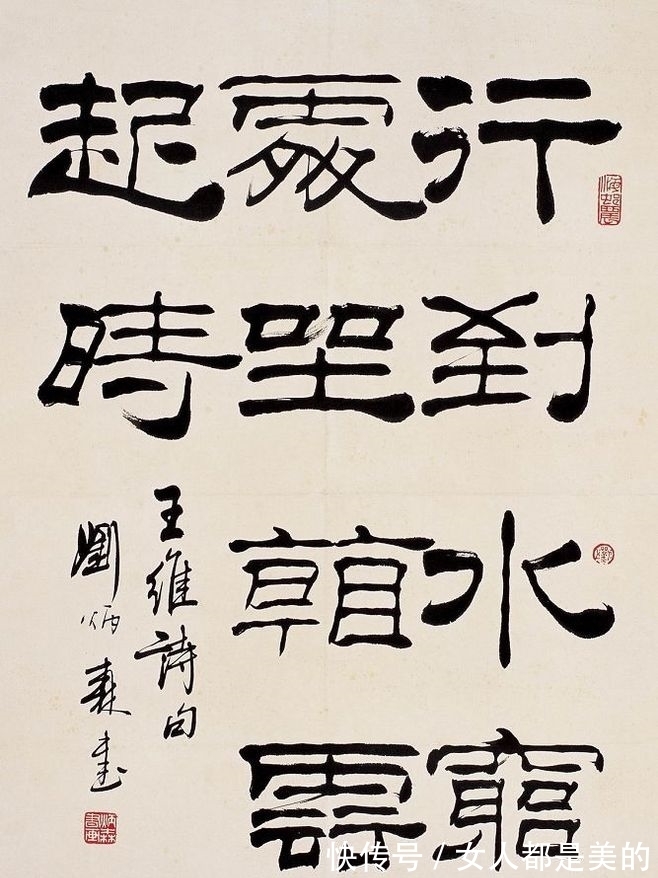 行到水窮
處坐看雲
起時
王維詩句
劉炳森書
炳森書画
快传号 / 女人都是美的